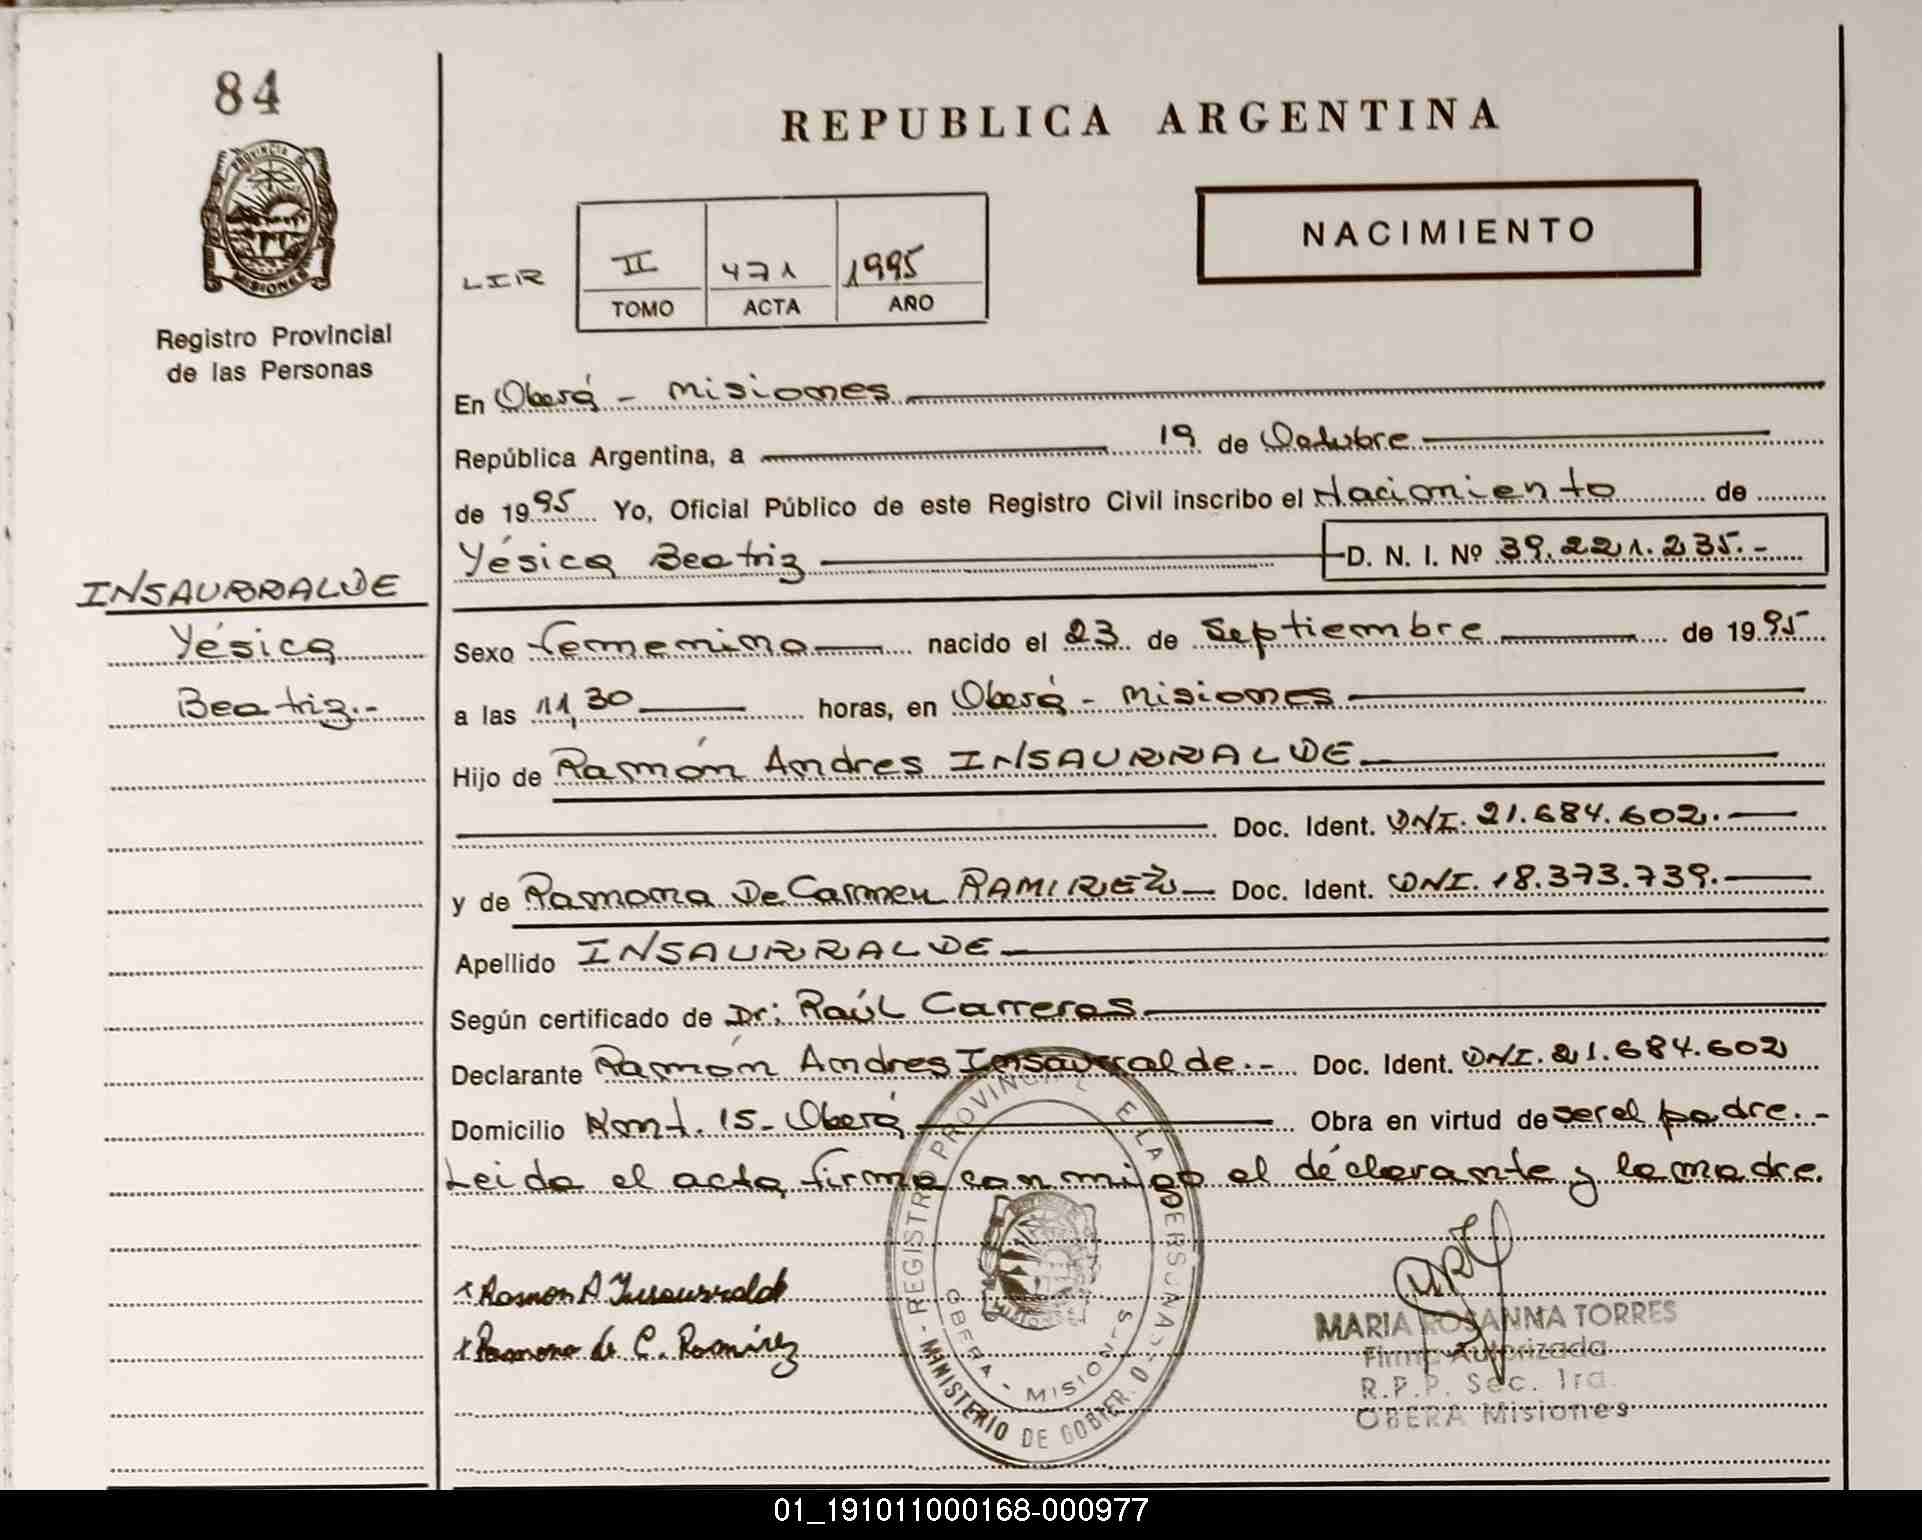 84
REPUBLICA ARGENTINA
PROVINCIA DE
MISIONES
Registro Provincial
de las Personas
NACIMIENTO
LIR II 471 1995
TOMO ACTA AÑO
En Oberá - Misiones
República Argentina, a 19 de Octubre
de 1995 Yo, Oficial Público de este Registro Civil inscribo el Nacimiento de
Yésica Beatriz D. N. I. Nº 39.221.235.-
INSAURRALDE
Yésica
Beatriz.-
Sexo femenino nacido el 23 de Septiembre de 1995
a las 11,30 horas, en Oberá - Misiones
Hijo de Ramón Andres INSAURRALDE
Doc. Ident. DNI. 21.684.602.
y de Ramona De Carmen RAMIREZ Doc. Ident. DNI. 18.373.739.
Apellido INSAURRALDE
Según certificado de Dr: Raúl Carreras
Declarante Ramón Andres Insaurralde.- Doc. Ident. DNI. 21.684.602
Domicilio Kmt. 15- Oberá Obra en virtud de ser el padre.-
Leida el acta, firma conmigo el déclarante y la madre.
Ramon A Insaurralde
Ramona de C. Ramírez
REGISTRO PROVINCIAL DE LAS PERSONAS
MINISTERIO DE GOBIERNO
OBERA - MISIONES
MARIA ROSANNA TORRES
Firma Autorizada
R.P.P. Sec. 1ra.
OBERA Misiones
01_191011000168-000977